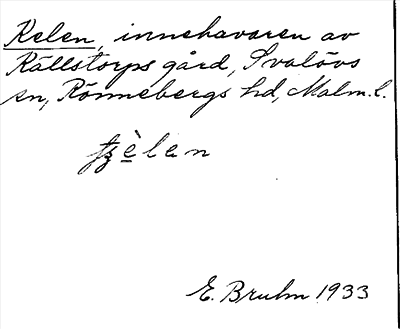 Kelen, innehavaren av
Källstorps gård, Svalövs
sn, Rönnebergs hd, Malm. l.
èlen
E. Bruhn 1933